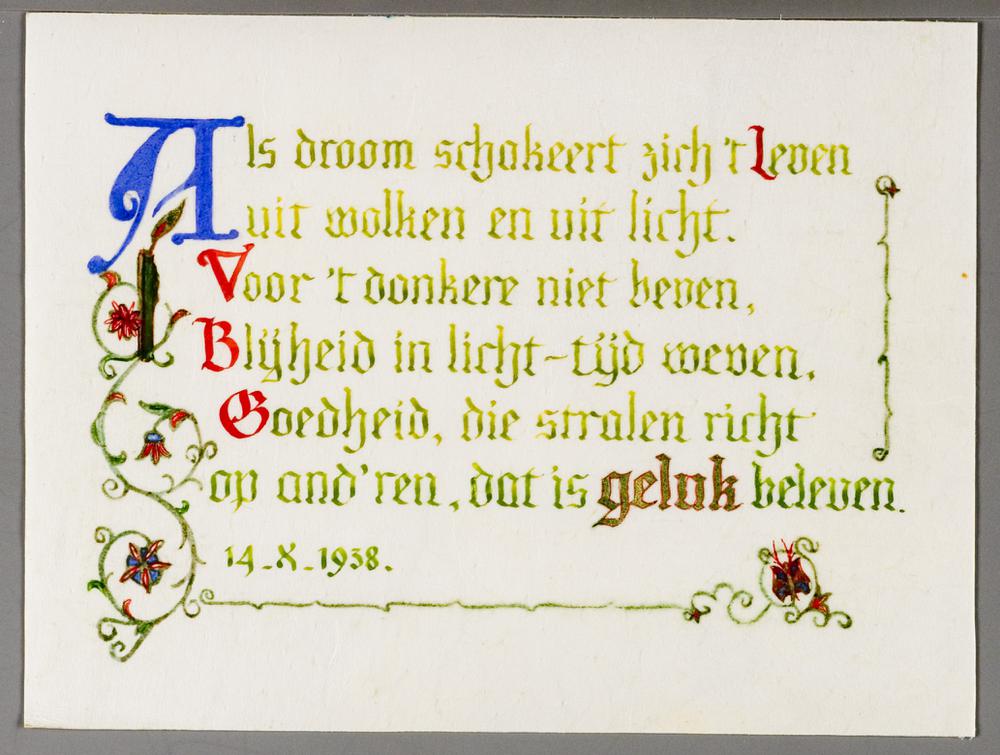 Als droom schakeert zich 't Leven
uit wolken en uit licht.
Voor 't donkere niet beven,
Blijheid in licht-tijd weven.
Goedheid, die stralen richt
op and'ren, dat is geluk beleven.
14-X-1938.